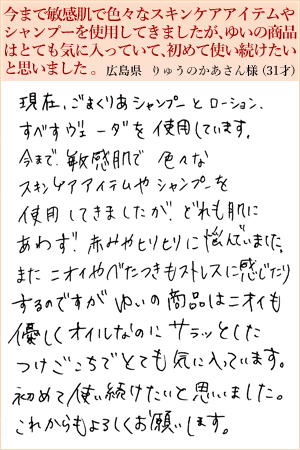 今まで敏感肌で色々なスキンケアアイテムや
シャンプーを使用してきましたが、ゆいの商品
はとても気に入っていて、初めて使い続けたい
と思いました。 広島県 りゅうのかあさん様（31才）
現在、ごまくりあシャンプーとローション、
すべすべヴェーダを使用しています。
今まで、敏感肌で 色々な
スキンケアアイテムや シャンプーを
使用してきましたが、どれも肌に
あわず、赤みやヒリヒリに悩んでいました。
また ニオイやべたつきもストレスに感じたり
するのですが ゆいの商品はニオイも
優しくオイルなのに サラッとした
つけごこちでとても気に入っています。
初めて使い続けたいと思いました。
これからもよろしくお願いします。